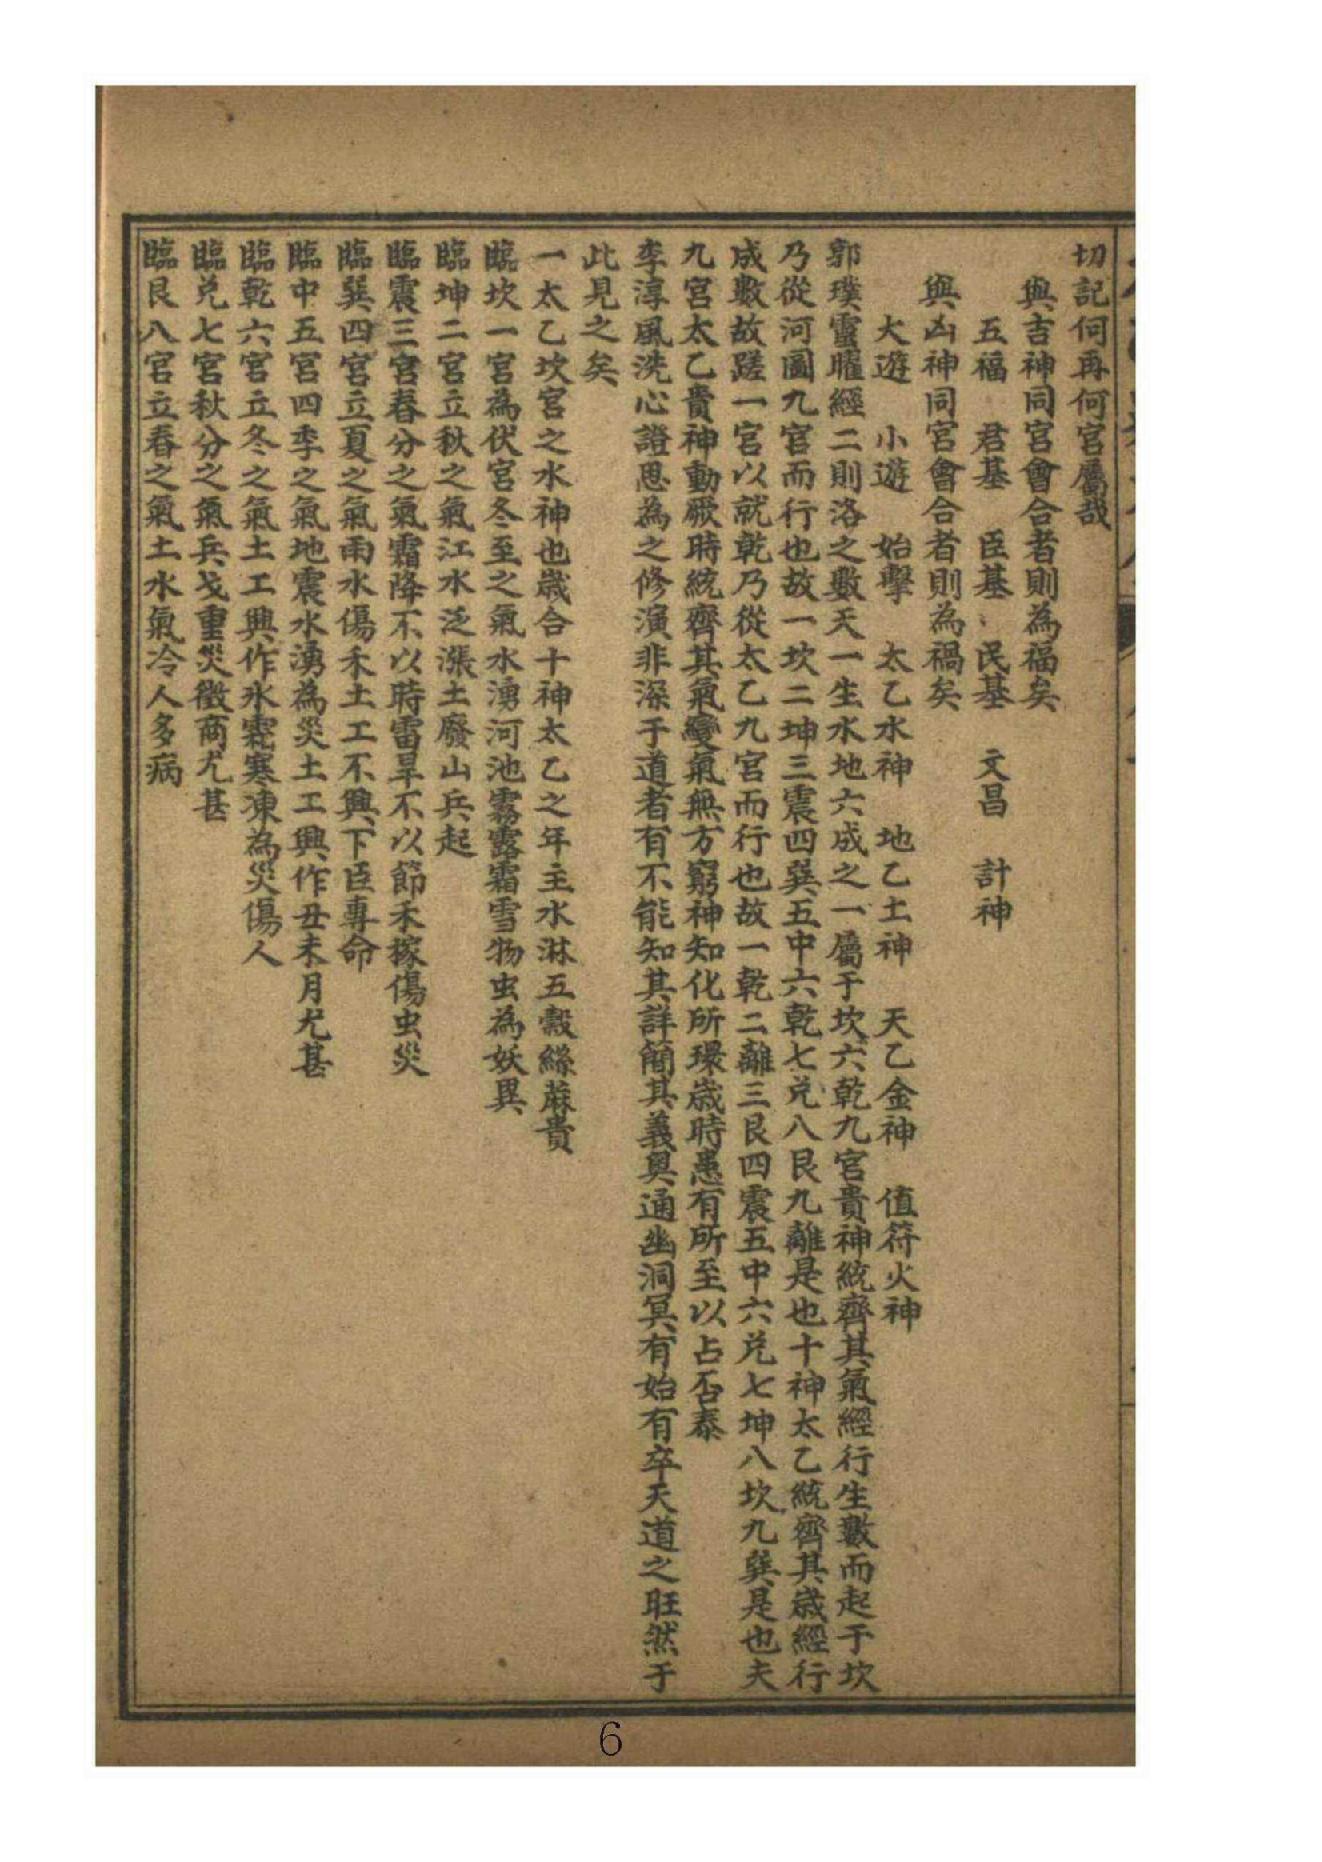 切記何再何宮屬哉
與吉神同宮會合者則為福矣
五福 君基 臣基 民基 文昌 計神
與凶神同宮會合者則為禍矣
大遊 小遊 始擊 太乙水神 地乙土神 天乙金神 值符火神
郭璞靈曜經二則洛之數天一生水地六成之一屬于坎六乾九宮貴神統齊其氣經行生數而起于坎
乃從河圖九宮而行也故一坎二坤三震四巽五中六乾七兌八艮九離是也十神太乙統齊其歲經行
成數故蹉一宮以就乾乃從太乙九宮而行也故一乾二離三艮四震五中六兌七坤八坎九巽是也夫
九宮太乙貴神動厥時統齊其氣變氣無方窮神知化所環歲時愚有所至以占否泰
李淳風洗心證思為之修演非深于道者有不能知其詳簡其義奧通幽洞冥有始有卒天道之旺然于
此見之矣
一太乙坎宮之水神也歲合十神太乙之年主水淋五穀絲蔴貴
臨坎一宮為伏宮冬至之氣水湧河池霧露霜雪物虫為妖異
臨坤二宮立秋之氣江水泛漲土廢山兵起
臨震三宮春分之氣霜降不以時雷旱不以節禾稼傷虫災
臨巽四宮立夏之氣雨水傷禾土工不興下臣專命
臨中五宮四季之氣地震水湧為災土工興作丑未月尤甚
臨乾六宮立冬之氣土工興作氷霜寒凍為災傷人
臨兌七宮秋分之氣兵戈重災徵商尤甚
臨艮八宮立春之氣土水氣冷人多病
6